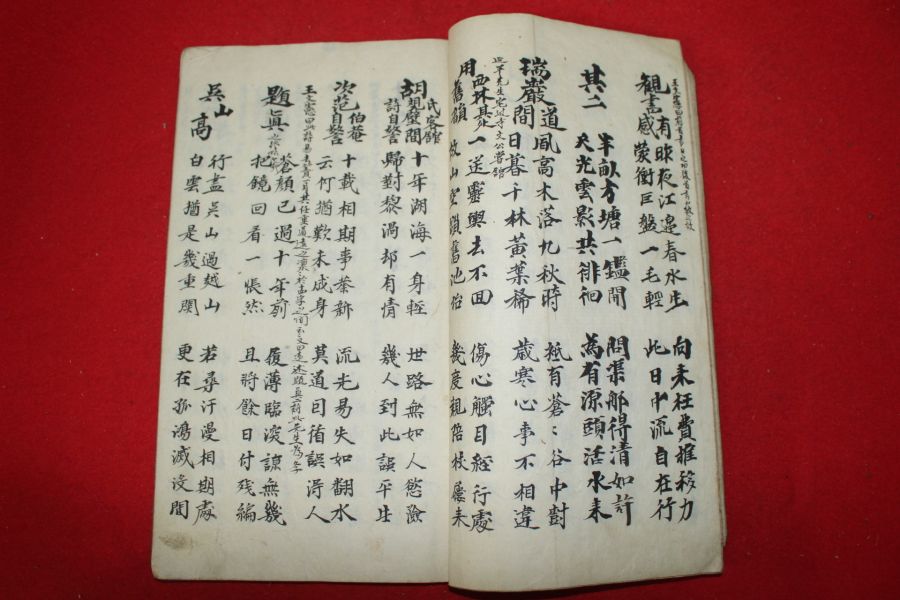 有昨夜江邊春水生 向来枉費推移力
觀書感蒙衝巨盤一毛輕 此日中流自在行
其二 半畝方塘一鑑開 問渠那得清如許
天光雲影共徘徊 為有源頭活水来
道風高木落九秋時 祗有蒼〻谷中對
瑞巖間日暮千林黃葉稀 歲寒心事不相違
西林 一送靈輿去不回 傷心觸目經行處
用舊韻 故山空鎖舊池 幾度親陪杖屨来
氏客館 十年湖海一身輕 世路無如人慾險
胡觀壁間詩自警 歸對黎渦却有情 幾人到此誤平生
伯 十載相期事業新 流光易失如翻水
次范自警 云何猶歎未成身 莫道因循誤得人
題眞 蒼顔已過十年前 履薄臨深諒無幾
把鏡回看一悵然 且將餘日付殘編
山 行盡吳山過越山 若尋汗漫相期處
吳高 白雲猶是幾重関 更在孤鴻滅沒間